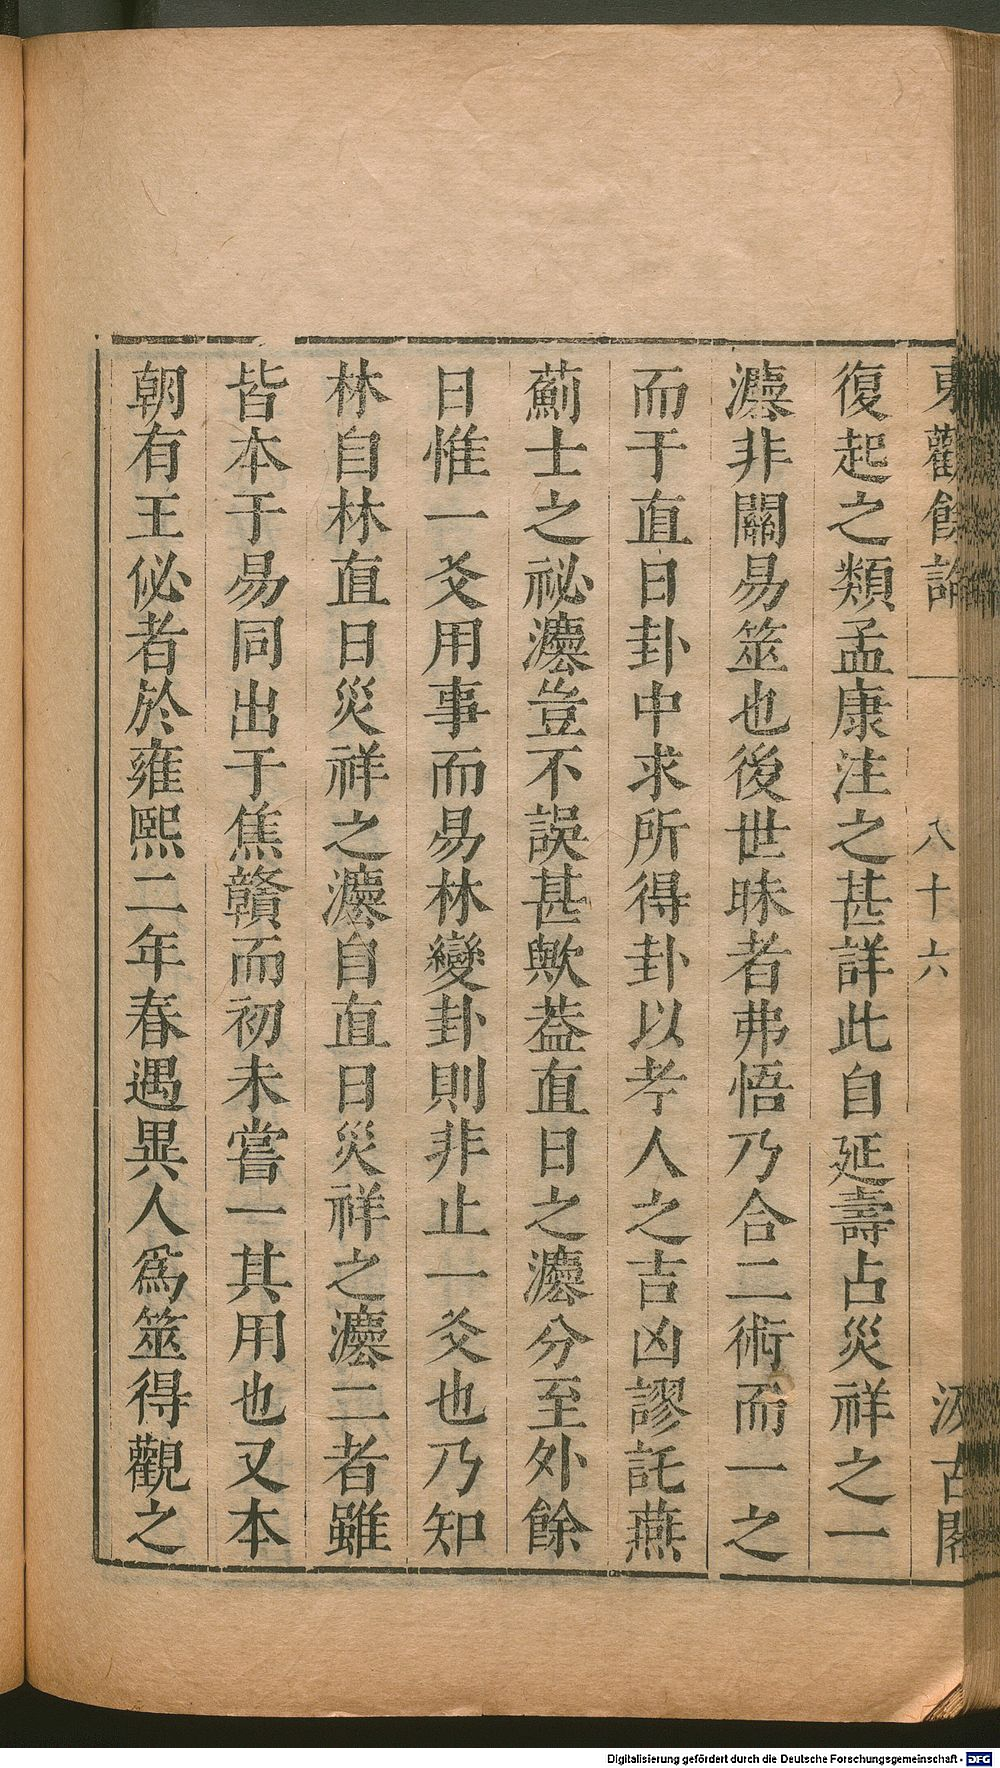 東觀餘論 八十六 汲古閣
復起之類孟康注之甚詳此自延壽占災祥之一
灋非關易筮也後世昧者弗悟乃合二術而一之
而于直日卦中求所得卦以考人之吉凶謬託燕
薊士之祕灋豈不誤甚歟葢直日之灋分至外餘
日惟一爻用事而易林變卦則非止一爻也乃知
林自林直日災祥之灋自直日災祥之灋二者雖
皆本于易同出于焦贛而初未嘗一其用也又本
朝有王佖者於雍熙二年春遇異人爲筮得觀之
Digitalisierung gefördert durch die Deutsche Forschungsgemeinschaft - DFG